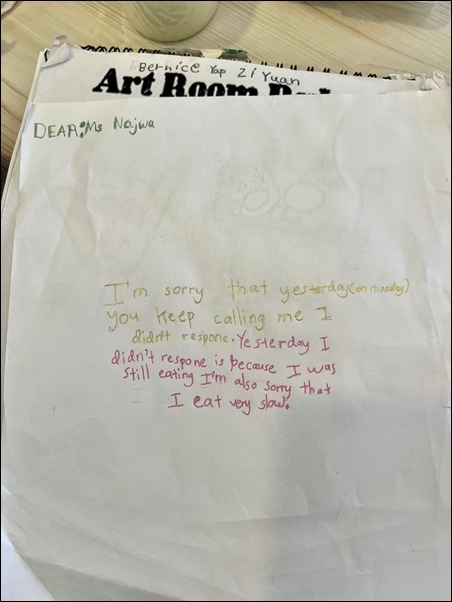 Bernice Yap Zi Yuan
Art Room
DEAR:Ms Najwa
I'm sorry that yesterday(on monday)
you keep calling me I
didn't respone. Yesterday I
didn't respone is because I was
still eating I'm also sorry that
I eat very slow.